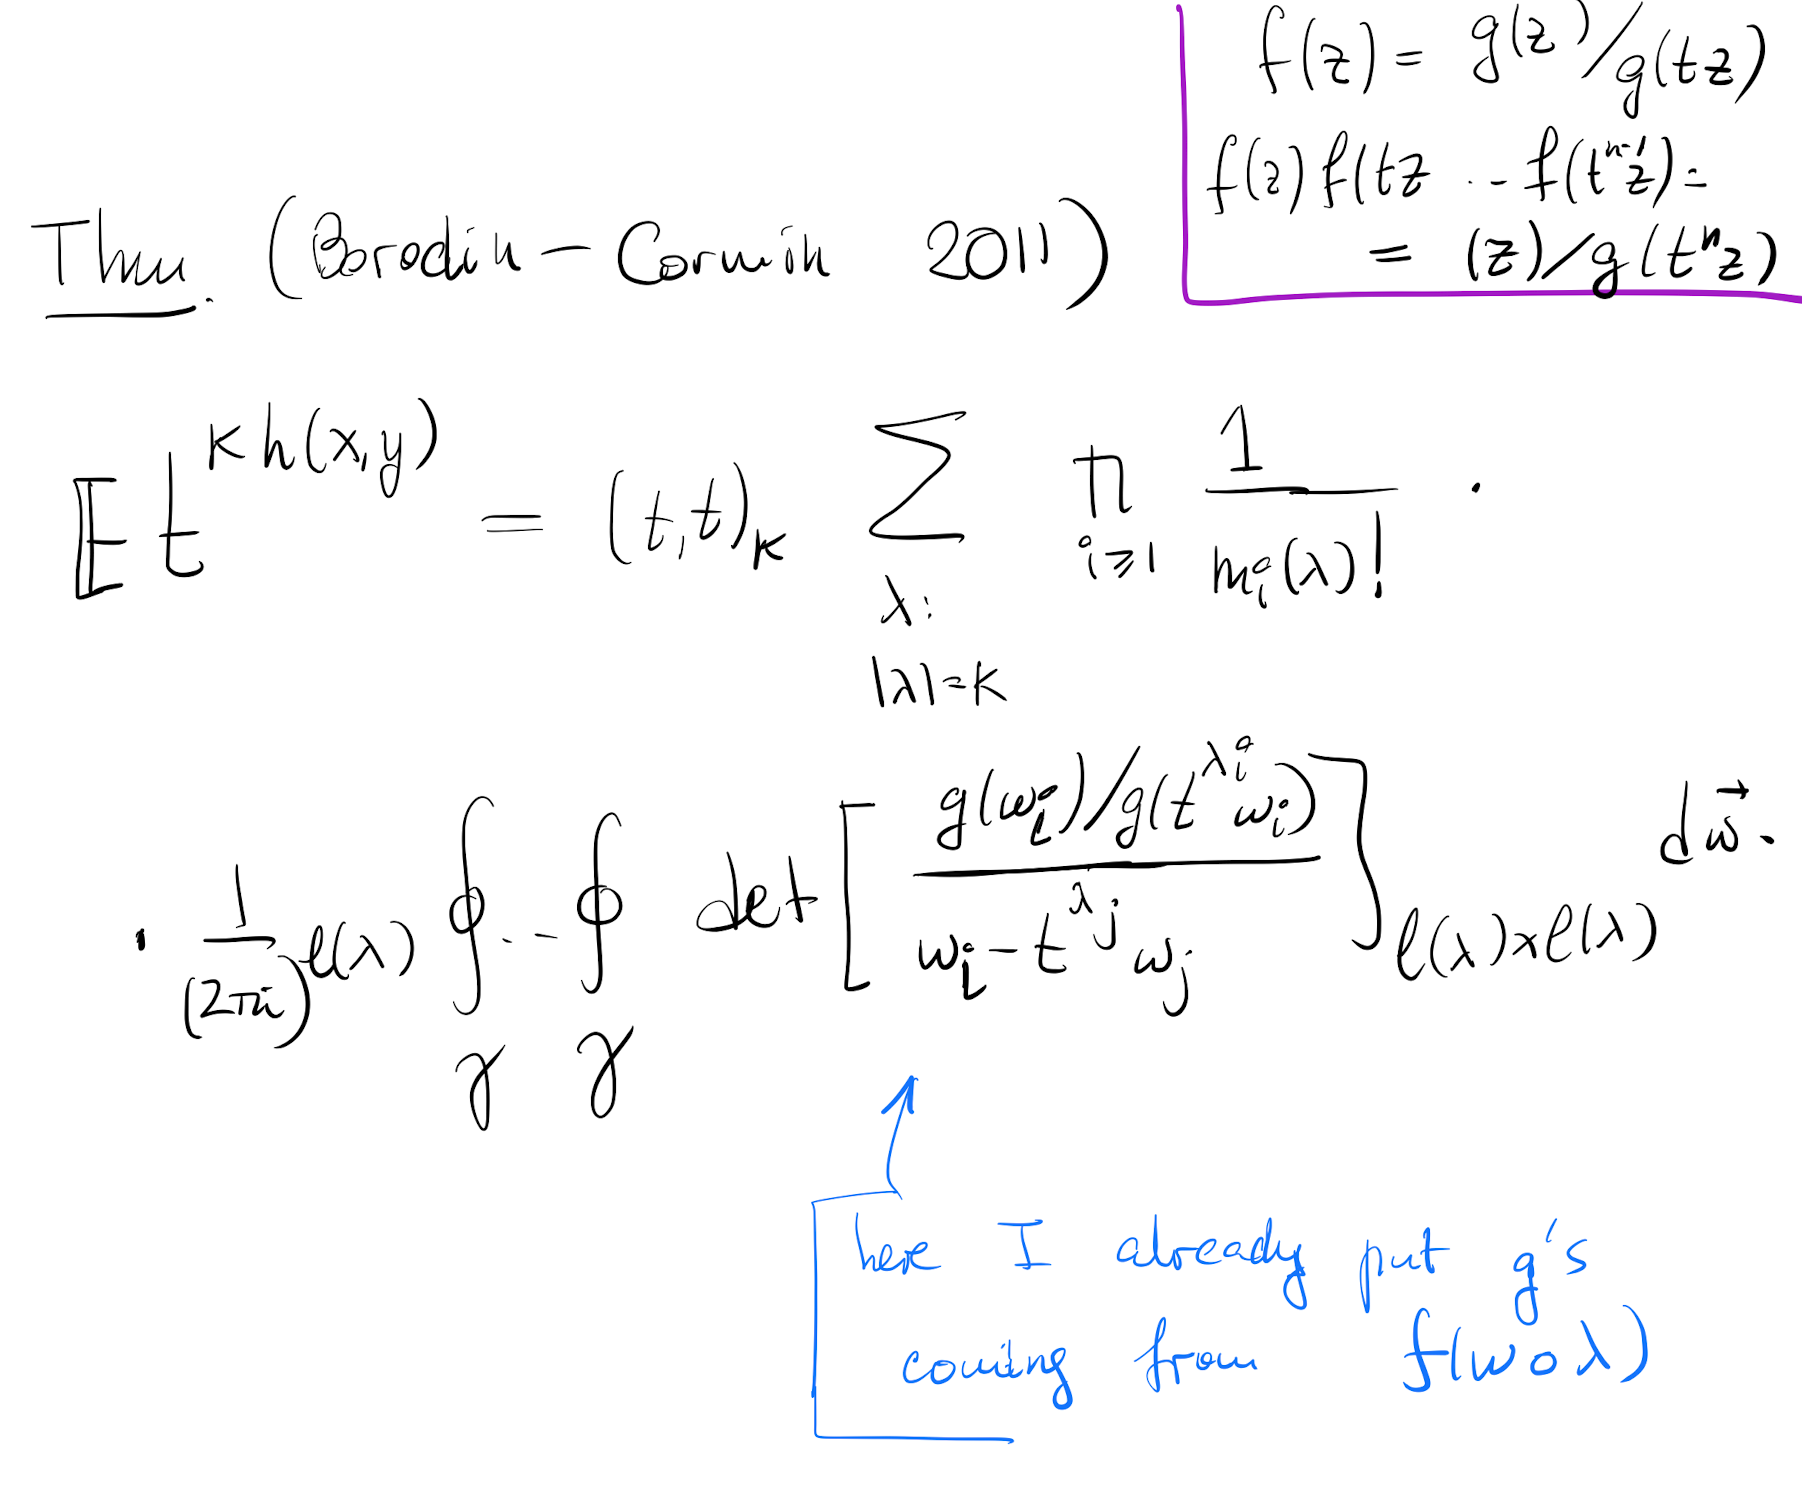 f(z) = g(z)/g(tz)
f(z) f(tz ... f(t^{n-1}z) =
= (z)/g(t^n z)
Thm. (Borodin - Corwin 2011)
𝔼 t^{k h(x,y)} = (t,t)_k ∑_{λ: |λ|=k} ∏_{i≥1} 1/m_i(λ)! ·
· 1/(2πi)^{ℓ(λ)} ∮_γ ... ∮_γ det [ (g(w_i)/g(t^{λ_i} w_i)) / (w_i - t^{λ_j} w_j) ]_{ℓ(λ)×ℓ(λ)} d\vec{w}.
here I already put g's
coming from f(w∘λ)